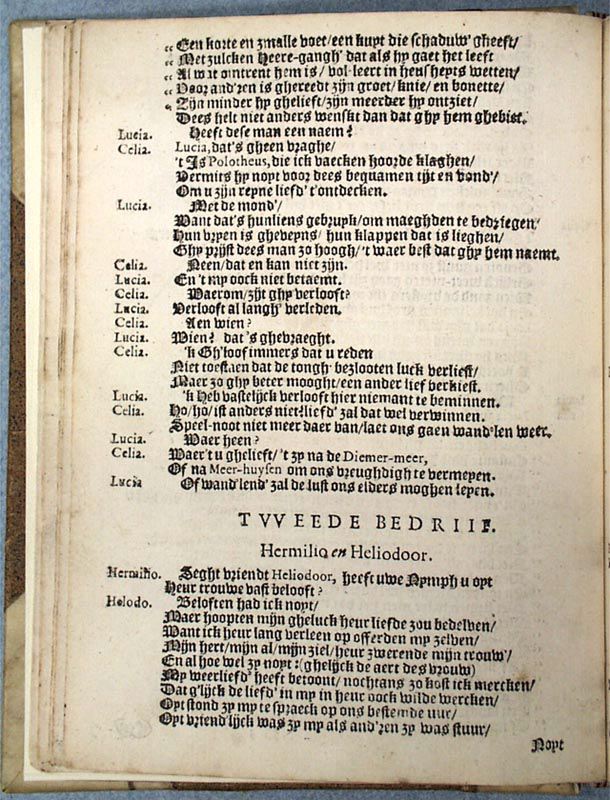 „ Een korte en zmalle voet/een kuyt die schaduw' gheeft/
„ Met zulcken Heere-gangh' dat als hy gaet het leeft
„ Al wat omtrent hem is/ vol-leert in heusheyts wetten/
„ Voor and'ren is ghereedt zijn groet/knie/en bonette/
„ Zijn minder hy ghelieft/zijn meerder hy ontziet/
Dees helt niet anders wenskt dan dat ghy hem ghebiet.
Lucia. Heeft dese man een naem?
Celia. Lucia, dat's gheen vraghe/
't Is Polotheus, die ick vaecken hoorde klaghen/
Vermits hy noyt voor dees bequamen tijt en vond'/
Om u zijn reyne liefd' t'ontdecken.
Lucia. Met de mond'/
Want dat's hunliens gebruyk/om maeghden te bedriegen/
Hun vryen is gheveyns/ hun klappen dat is lieghen/
Ghy prijst dees man zo hoogh/'t waer best dat ghy hem naemt.
Celia. Neen/dat en kan niet zijn.
Lucia. En 't my oock niet betaemt.
Celia. Waerom/zijt ghy verlooft?
Lucia. Verlooft al langh' verleden.
Celia. Aen wien?
Lucia. Wien? dat's ghevraeght.
Celia. 'k Gh'loof immers dat u reden
Niet toestaen dat de tongh' bezlooten luck verliest/
Maer zo ghy beter mooght/een ander lief verkiest.
Lucia. 'k Heb vastelijck verlooft hier niemant te beminnen.
Celia. Ho/ho/ist anders niet?liefd' zal dat wel verwinnen.
Speel-noot niet meer daer van/laet ons gaen wand'len weer.
Lucia. Waer heen?
Celia. Waer't u ghelieft/ 't zy na de Diemer-meer,
Of na Meer-huysen om ons vreughdigh te vermeyen.
Lucia Of wand'lend' zal de lust ons elders moghen leyen.
TWEEDE BEDRIIF.
Hermilio en Heliodoor.
Hermilio. Seght vriendt Heliodoor, heeft uwe Nymph u oyt
Heur trouwe vast belooft?
Helodo. Beloften had ick noyt/
Maer hoopten mijn gheluck heur liefde zou bedelven/
Want ick heur lang verleen op offerden my zelven/
Mijn hert/mijn al/mijn ziel/heur zwerende mijn trouw'/
En al hoe wel zy noyt:(ghelijck de aert des vrouw)
My weerliefd' heeft betoont/ nochtans zo kost ick mercken/
Dat g'lijck de liefd' in my in heur oock wilde wercken/
Oyt stond zy my te spraeck op ons bestemde uur/
Oyt vriend'lijck was zy my als and'ren zy was stuur/
Noyt